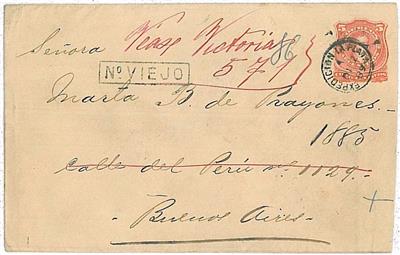 Señora
Vease Victoria 86
571
Nº VIEJO
Marta B. de Prayones.
1885
calle del Perú nº 1129.
Buenos Aires
EXPEDICION LA PLATA